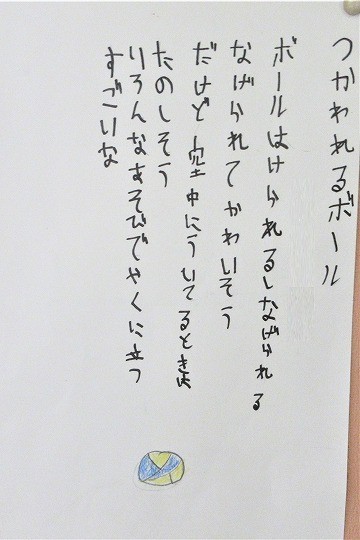 つかわれるボール
ボールはけられるしなげられる
なげられてかわいそう
だけど空中にういてるときは
たのしそう
いろんなあそびでやくに立つ
すごいな